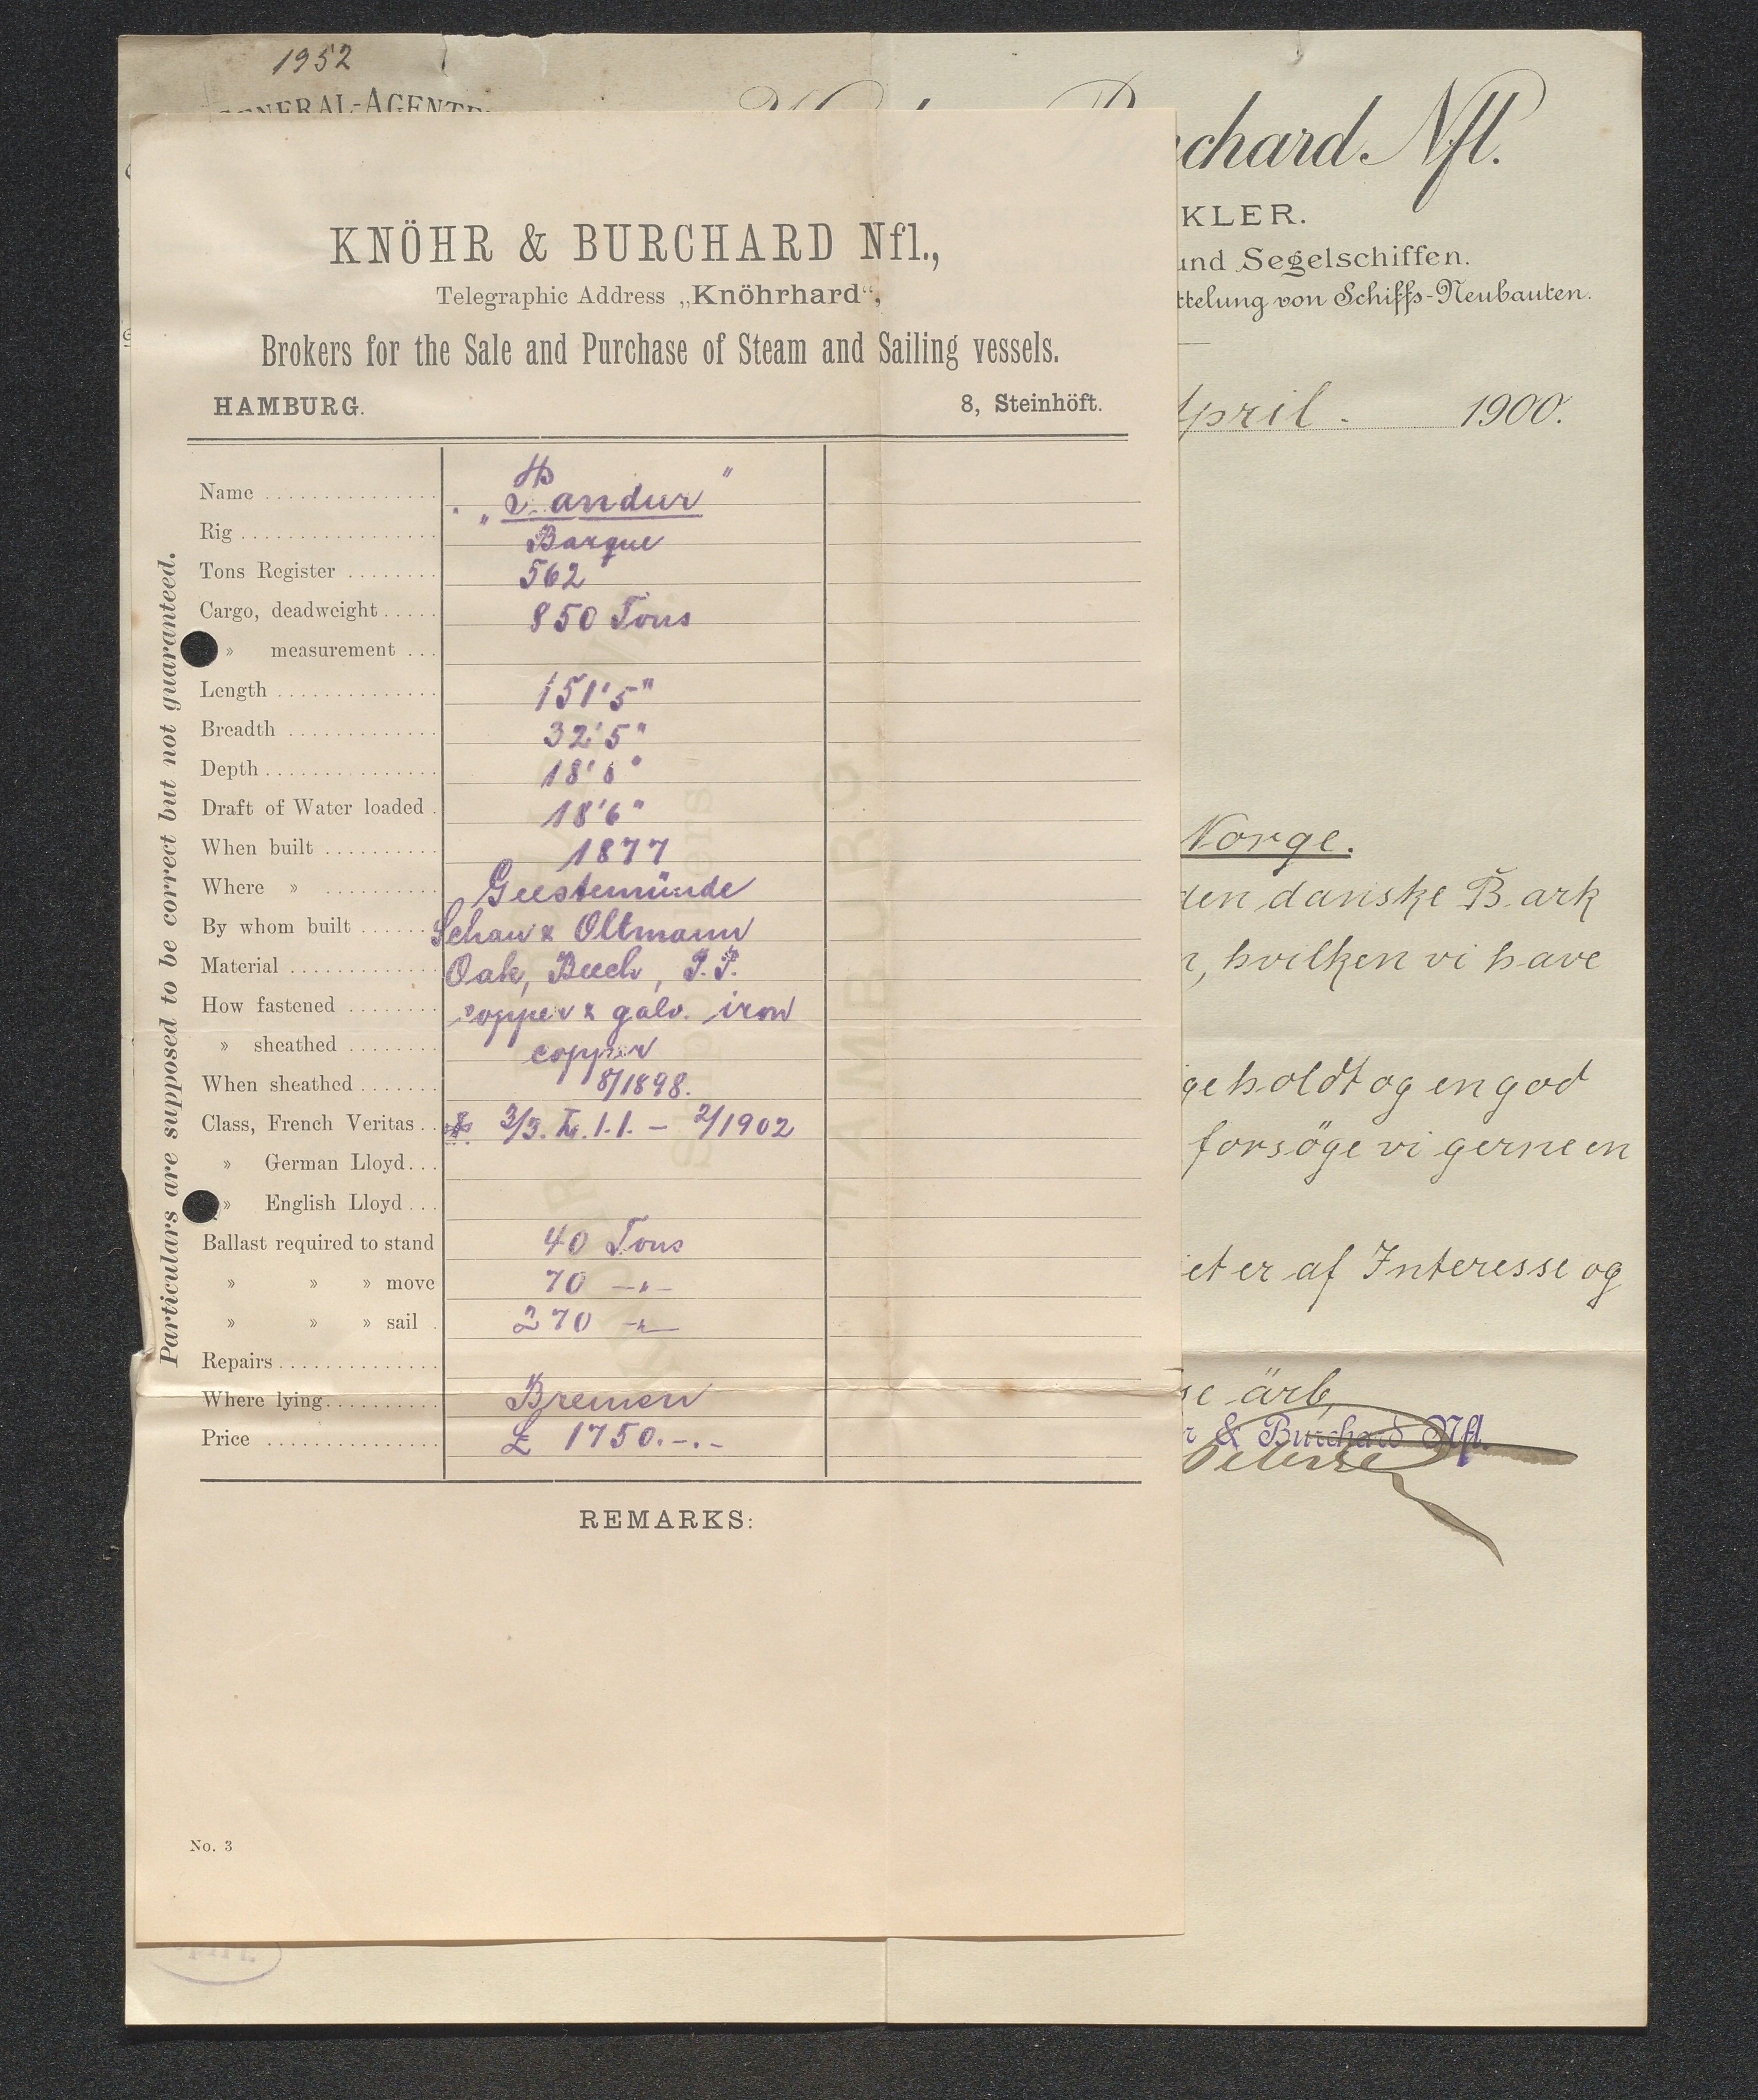 1952
GENERAL-AGENTE
chard Nfl.
KLER.
und Segelschiffen.
ttelung von Schiffs-Neubauten.
April. 1900.
Norge.
den danske Bark
, hvilken vi have
geholdt og en god
forsöge vi gerne en
et er af Interesse og
ärb,
r & Burchard Nfl.
KNÖHR & BURCHARD Nfl.,
Telegraphic Address „Knöhrhard“,
Brokers for the Sale and Purchase of Steam and Sailing vessels.
HAMBURG. 8, Steinhöft.
Particulars are supposed to be correct but not guaranteed.
Name „ andur"
Rig Barque
Tons Register 562
Cargo, deadweight 850 Tons
» measurement
Length 151'5"
Breadth 32'5"
Depth 18'
Draft of Water loaded 18'6"
When built 1877
Where » Geestemünde
By whom built Schau & Oltmann
Material Oak, Beech, P.P.
How fastened copper & galv. iron
» sheathed copper
When sheathed 8/1898.
Class, French Veritas 3/3. L. 1.1. – 2/1902
» German Lloyd
» English Lloyd
Ballast required to stand 40 Tons
» » » move 70 –"–
» » » sail 270 –"–
Repairs
Where lying Bremen
Price £ 1750.-.-
REMARKS:
No. 3